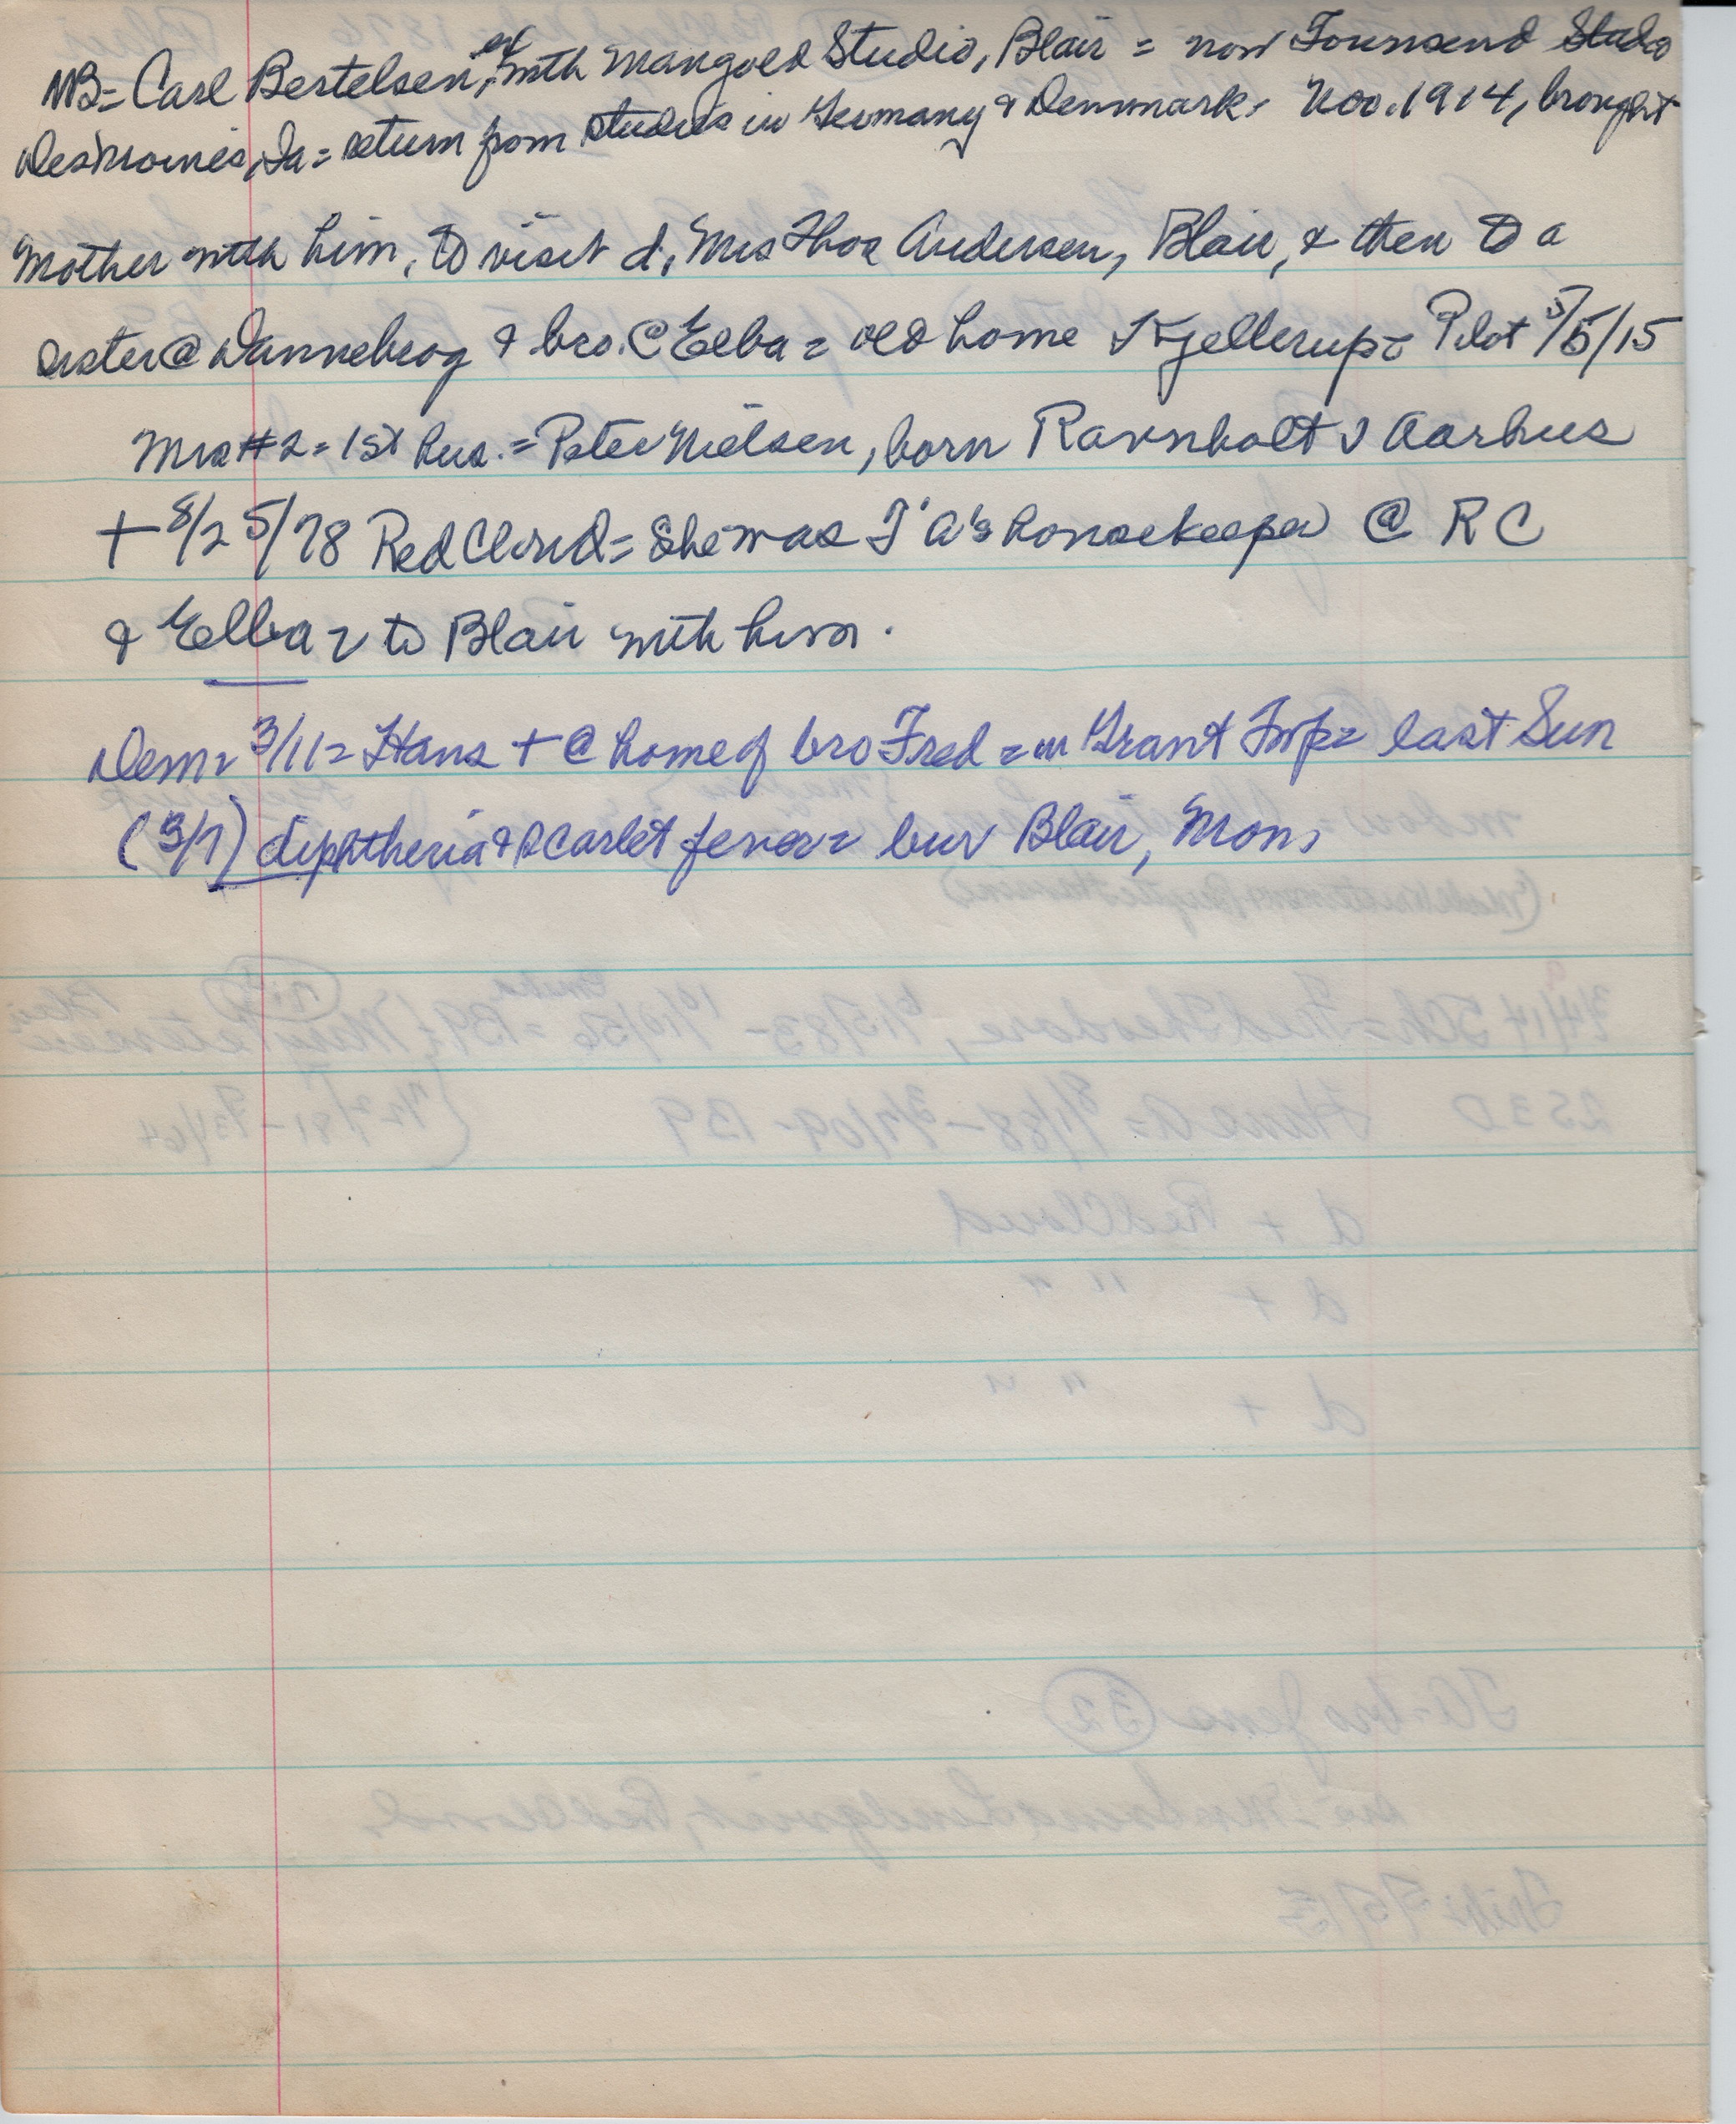 NB= Carl Bertelsen, ex with Mangold Studio, Blair = now Townsend Studio
Des Moines, Ia = return from studies in Germany & Denmark, Nov. 1914, brought
Mother with him, to visit d, Mrs Thos Andersen, Blair, & then to a
sister @ Dannebrog & bro. @ Elba = old home Kjellerup = Pilot 5/5/15
Mrs #2 = 1st hus. = Peter Nielsen, born Ravnholt v Aarhus
+ 8/25/78 Red Cloud = She was T A's housekeeper @ RC
& Elba = to Blair with him.
Dem = 3/11 = Hans + @ home of bro Fred = in Grant Twp = last Sun
(3/7) diphtheria & scarlet fever = bur Blair, Mon,